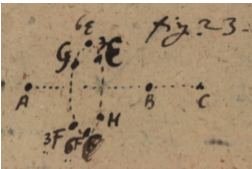 fig. 23.
6E
G 3E
A B C
H
3F 6F